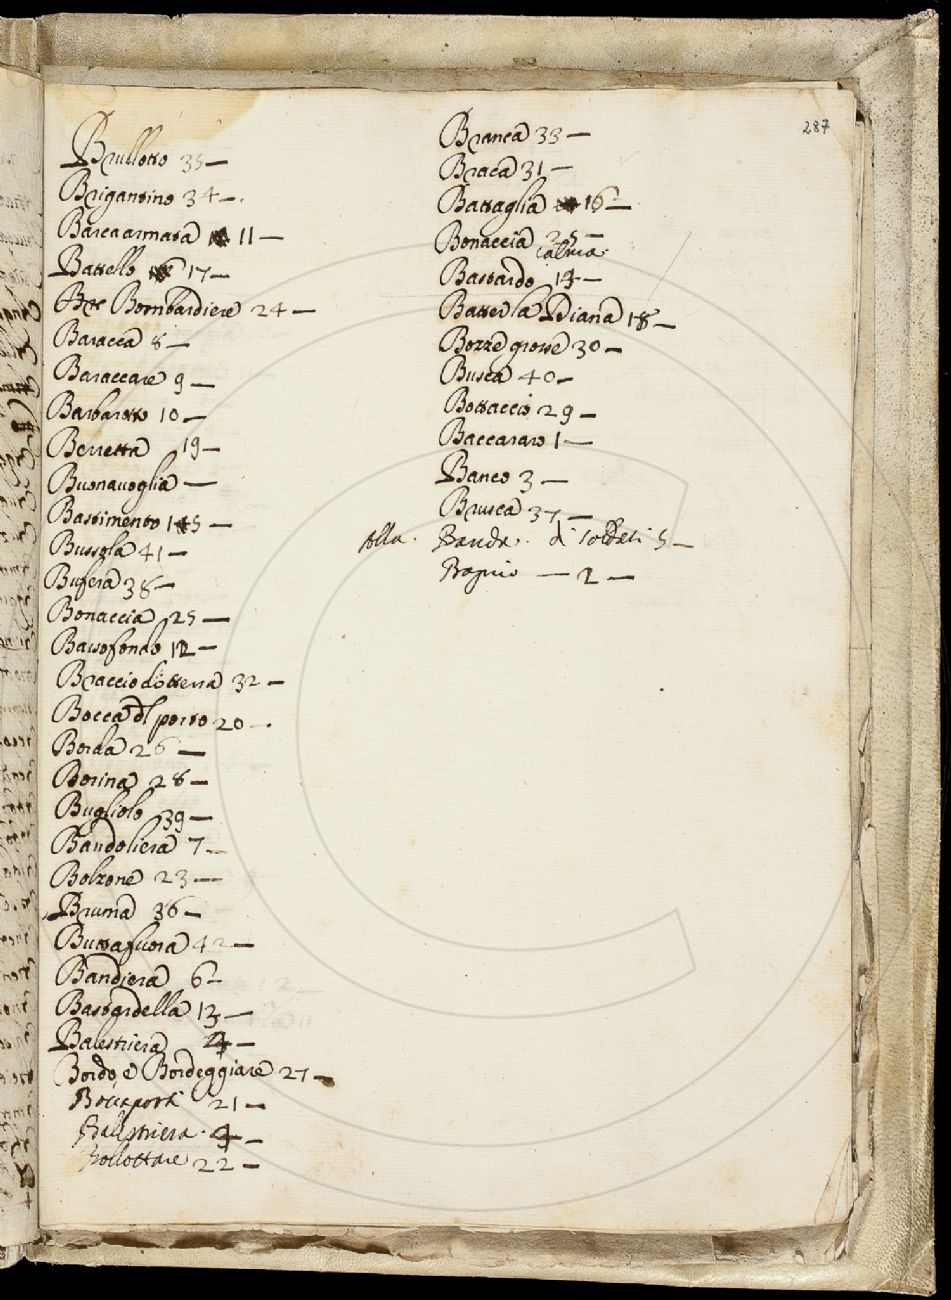 287
Brullotto 35 —
Brigantino 34 —.
Barca armata 11 —
Battello 17 —
Bombardiere 24 —
Baracca 8 —
Baraccare 9 —
Barbarotto 10 —
Berretta 19 —
Buonauoglia —
Bastimento 15 —
Bussola 41 —
Bufera 38 —
Bonaccia 25 —
Bassofondo 12 —
Braccio di terra 32 —
Bocca dl porto 20 —.
Borda 26 —
Borina 28 —
Bugliolo 39 —
Bandoliera 7 —
Bolzone 23 —
Bruma 36 —
Buttafuora 42 —
Bandiera 6 —
Bastardella 13 —
Balestriera 4 —
Bordo, e Bordeggiare 27 —
21 —
Balestriera. 4 —
Bollottare 22 —
Branca 33 —
Braca 31 —
Battaglia 16 —
Bonaccia 25 —
calma
Bastardo 14 —
Batter la Diana 18 —
Bozze grosse 30 —
Busca 40 —
Bottaccio 29 —
Baccararo 1 —
Banco 3 —
Brusca 37 —
Alla. Banda. di soldati 5 —
Bagnio — 2 —